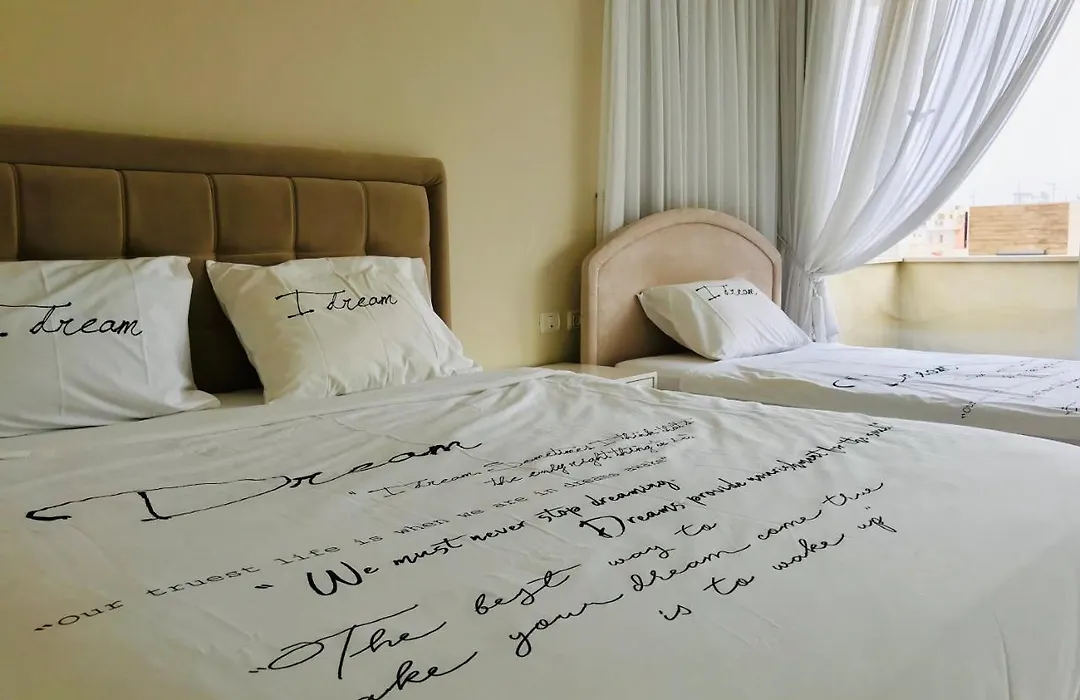 I dream
I dream
I dream
Dream
"I dream. Sometimes I think that's
the only right thing to do."
"our truest life is when we are in dreams awake"
"We must never stop dreaming.
Dreams provide nourishment for the soul"
"The best way to
make your dream come true
is to wake up"
Dream